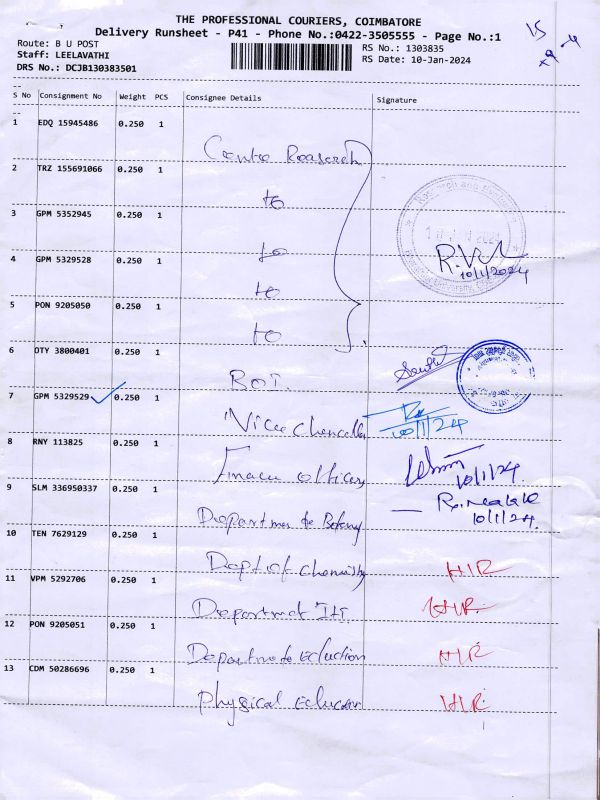 THE PROFESSIONAL COURIERS, COIMBATORE
Delivery Runsheet - P41 - Phone No.:0422-3505555 - Page No.:1
Route: B U POST
RS No.: 1303835
Staff: LEELAVATHI
RS Date: 10-Jan-2024
DRS No.: DCJB130383501
S No Consignment No Weight PCS Consignee Details Signature
1 EDQ 15945486 0.250 1
Centre Research
2 TRZ 155691066 0.250 1
to
3 GPM 5352945 0.250 1
to
4 GPM 5329528 0.250 1
R.V 10/1/2024
to
5 PON 9205050 0.250 1
to
6 OTY 3800401 0.250 1
B.O.I.
7 GPM 5329529 0.250 1
Vice Chancellor 10/1/24
8 RNY 113825 0.250 1
Finance officer 10/1/24.
9 SLM 336950337 0.250 1
Department to Botany 10/1/24.
10 TEN 7629129 0.250 1
Dept of chemistry HIR
11 VPM 5292706 0.250 1
Department HIR
12 PON 9205051 0.250 1
Department to Eduction HIR
13 CDM 50286696 0.250 1
Physical Education HIR